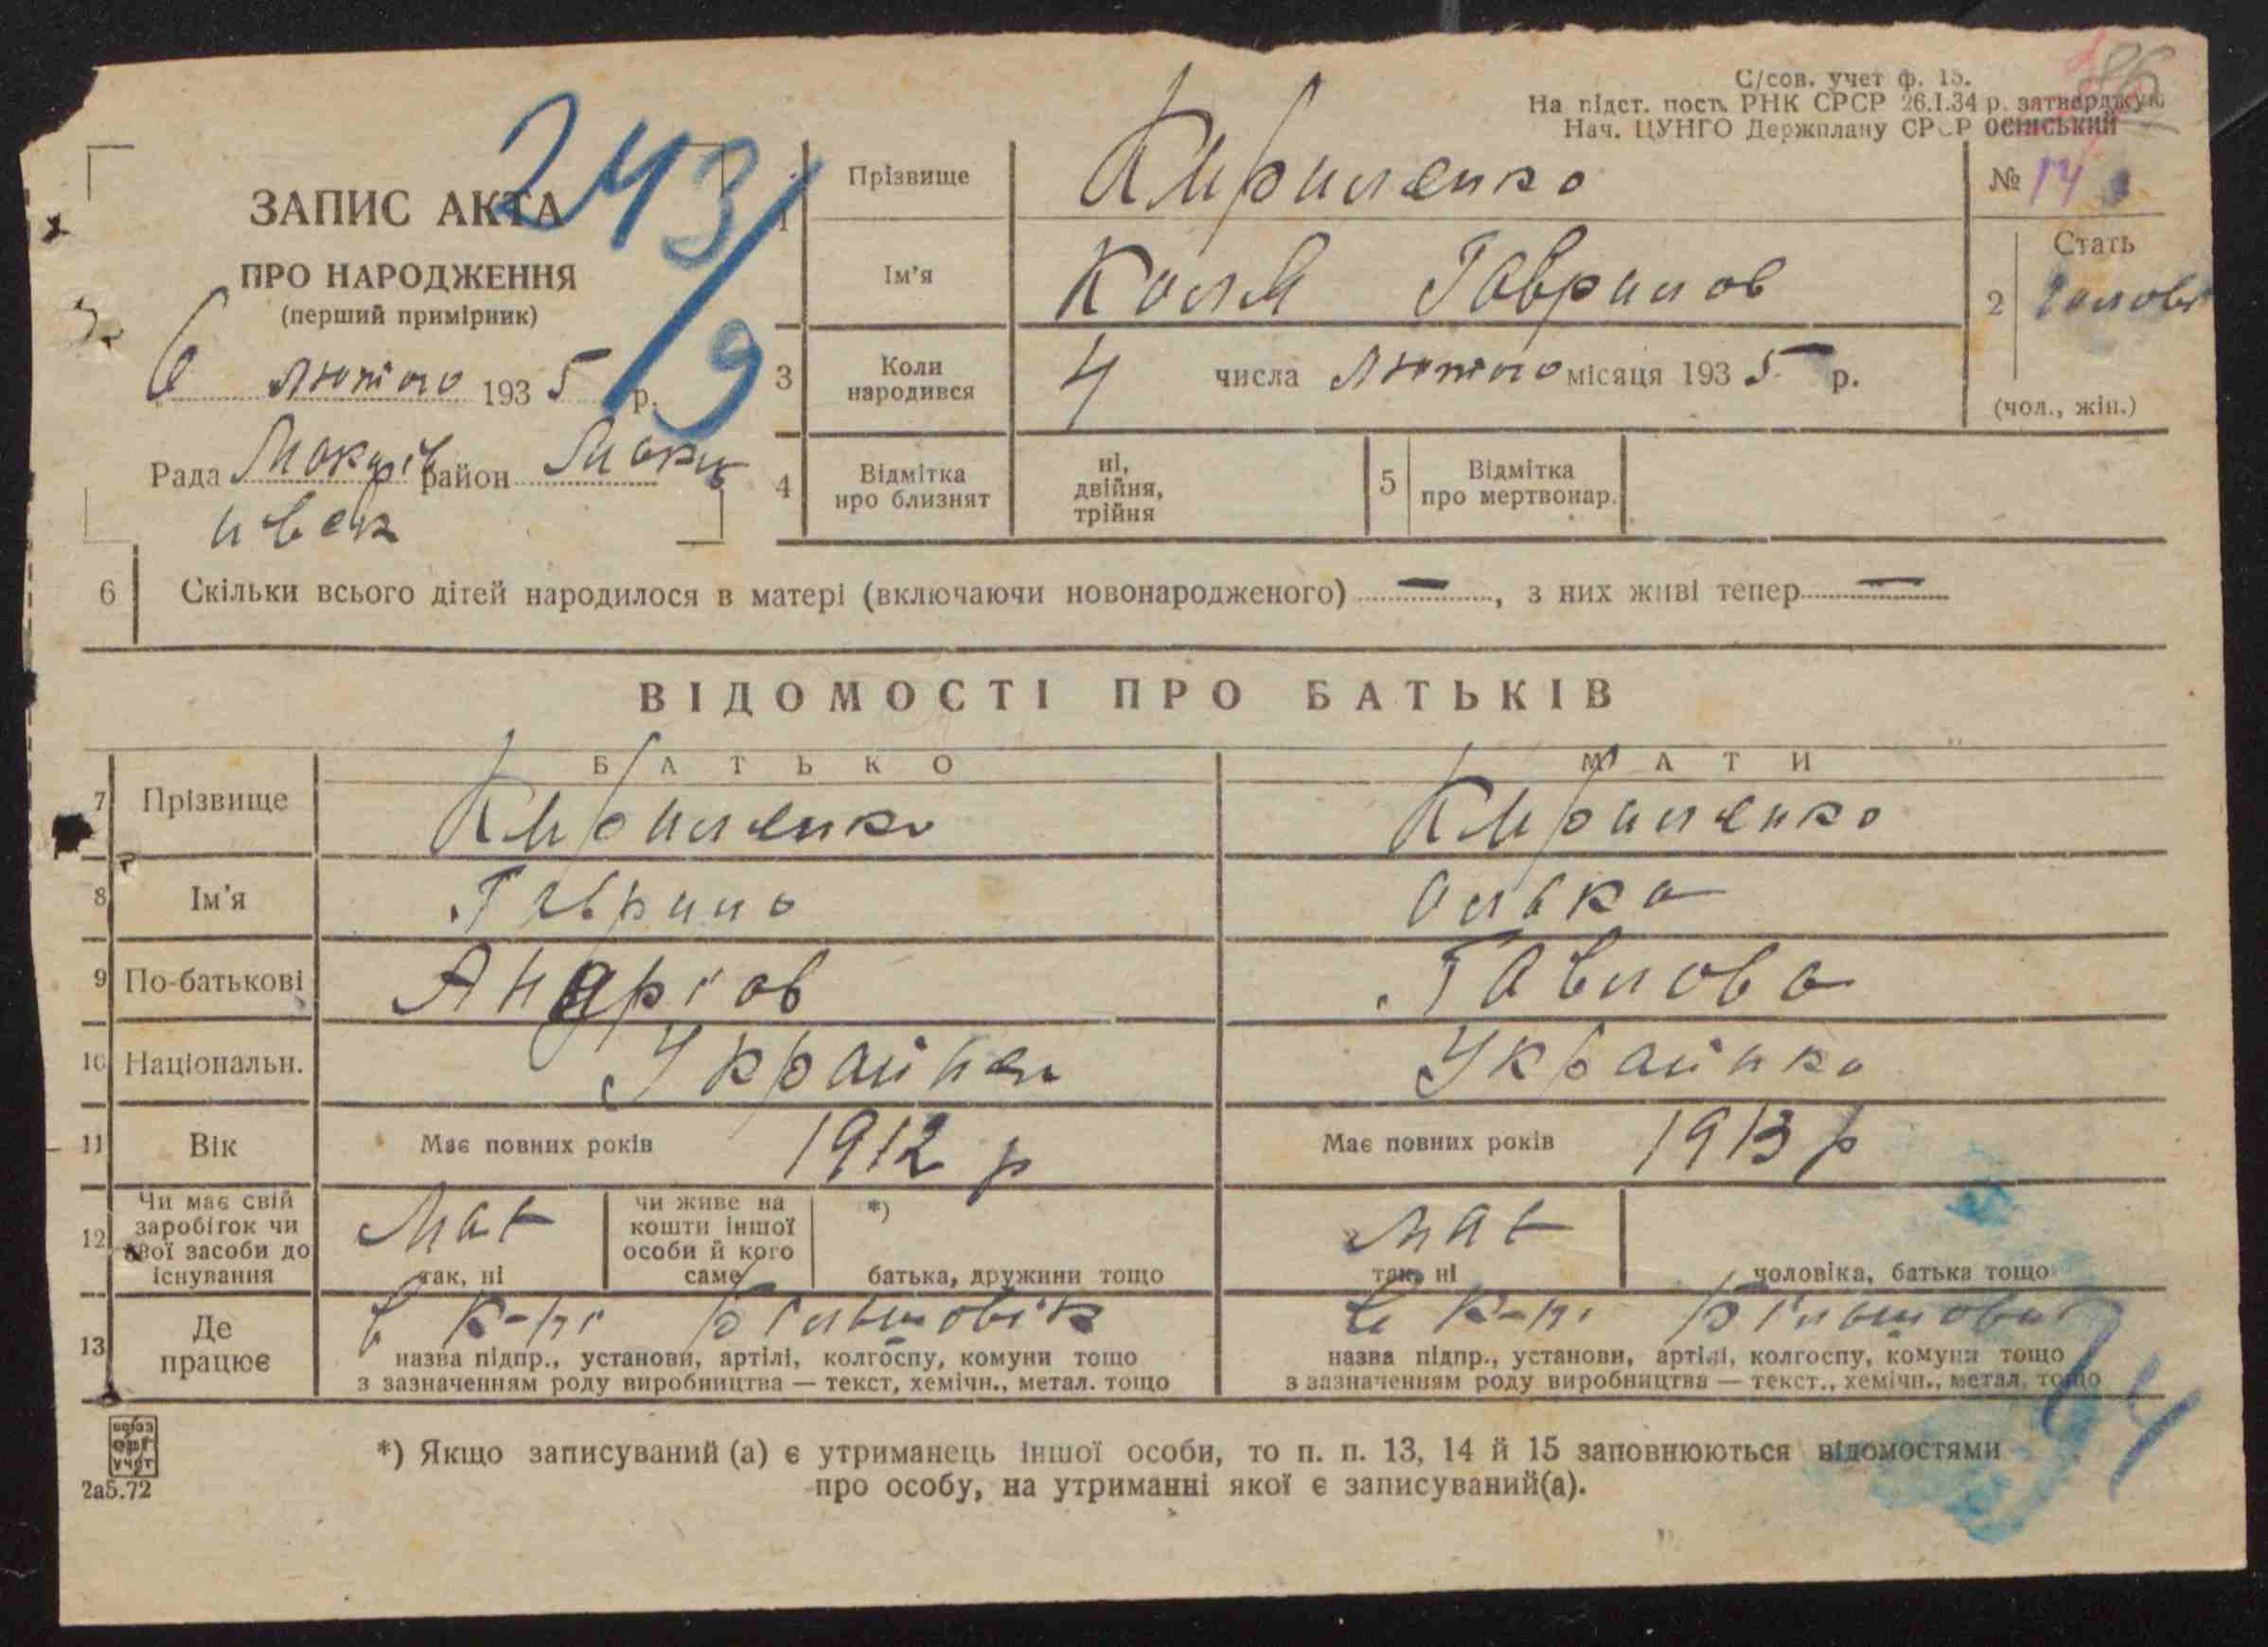 С/сов. учет ф. 15.
На підст. пост. РНК СРСР 26.I.34 р. затверджую
Нач. ЦУНГО Держплану СРСР ОСІНСЬКИЙ
86
243/9
ЗАПИС АКТА
ПРО НАРОДЖЕННЯ
(перший примірник)
6 лютого 1935 р.
Рада Мокрів район
1 Прізвище Кириленко
Ім'я Коля Гаврилов
№ 14
2 Стать
(чол., жін.)
3 Коли народився 4 числа лютого місяця 1935 р.
4 Відмітка про близнят ні, двійня, трійня
5 Відмітка про мертвонар.
6 Скільки всього дітей народилося в матері (включаючи новонародженого) —, з них живі тепер —
ВІДОМОСТІ ПРО БАТЬКІВ
БАТЬКО МАТИ
7 Прізвище Кириленко Кириленко
8 Ім'я Гаврило Олька
9 По-батькові Андріов Павлова
10 Національн. Українец Українка
11 Вік Має повних років 1912 р Має повних років 1913 р
12 Чи має свій заробіток чи свої засоби до існування Має так, ні чи живе на кошти іншої особи й кого саме *) батька, дружини тощо має так, ні чоловіка, батька тощо
13 Де працює в к-пі Більшовік в к-пі
назва підпр., установи, артілі, колгоспу, комуни тощо назва підпр., установи, артілі, колгоспу, комуни тощо
з зазначенням роду виробництва — текст, хемічн., метал. тощо з зазначенням роду виробництва — текст., хемічн., метал. тощо
союз
орг
учет
2а5.72
*) Якщо записуваний (а) є утриманець іншої особи, то п. п. 13, 14 й 15 заповнюються відомостями
про особу, на утриманні якої є записуваний(а).